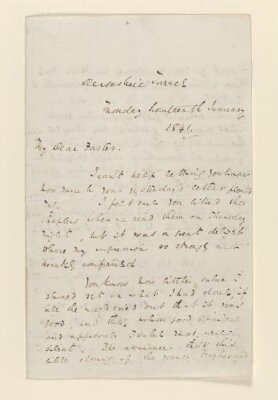 Devonshire Terrace
Sunday Seventeenth January
1841.
My Dear Forster.
I can't help letting you know
how much your yesterday's letter pleased
me. I felt sure you liked the
chapters when we read them on Thursday
night, but it was a great delight
to have my impression so strongly and
heartily confirmed.
You know how little value I
should set on what I had done, if
all the world cried out that it was
good, and those whose good opinion
and approbation I value most, were
silent. The assurance that this
little closing of the scene, touches and